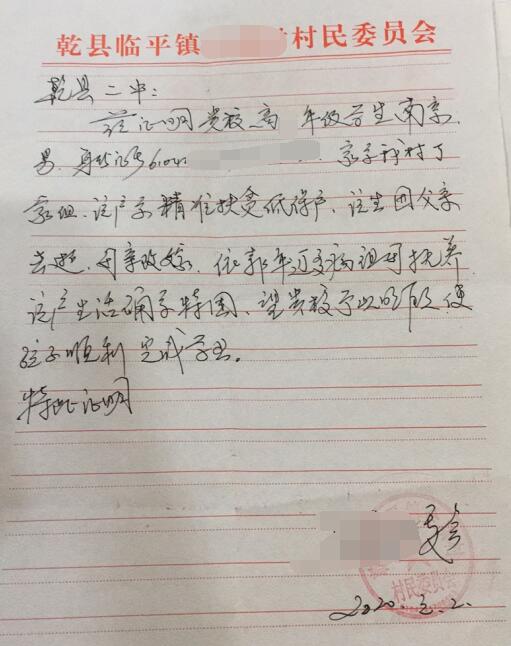 乾县临平镇 村民委员会
乾县二中:
兹证明贵校高 年级学生南京,
男,身份证号610 家系我村丁
家组,该户系精准扶贫低保户,该生因父亲
去逝,母亲改嫁,依靠年迈多病祖母抚养
该户生活确实特困,望贵校予以照顾,使
孩子顺利完成学业。
特此证明
村委会
村民委员会
2020. 2.